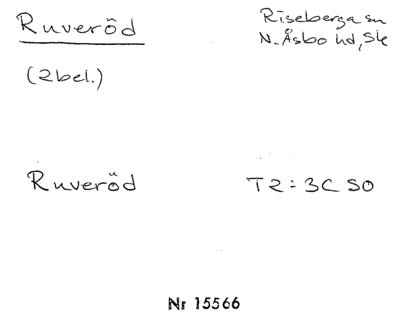 Ruveröd
Riseberga sn
N. Åsbo hd, Sk
(2bel.)
Ruveröd
T2: 3C SO
Nr 15566